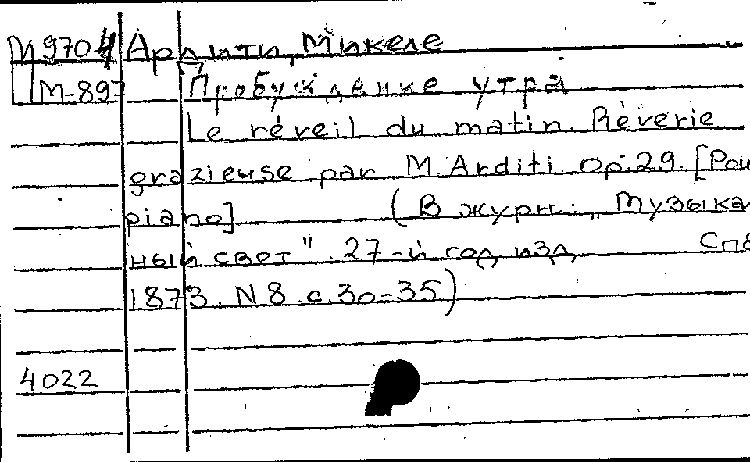 М 9704 Ардити, Микеле
М-897 Пробуждение утра
Le réveil du matin. Rêverie
grazieuse par M. Arditi op. 29. [Pou
piano] (В журн.: „Музыка
ный свет". 27-й год изд. Спб
1873. N 8. с. 30-35)
4022